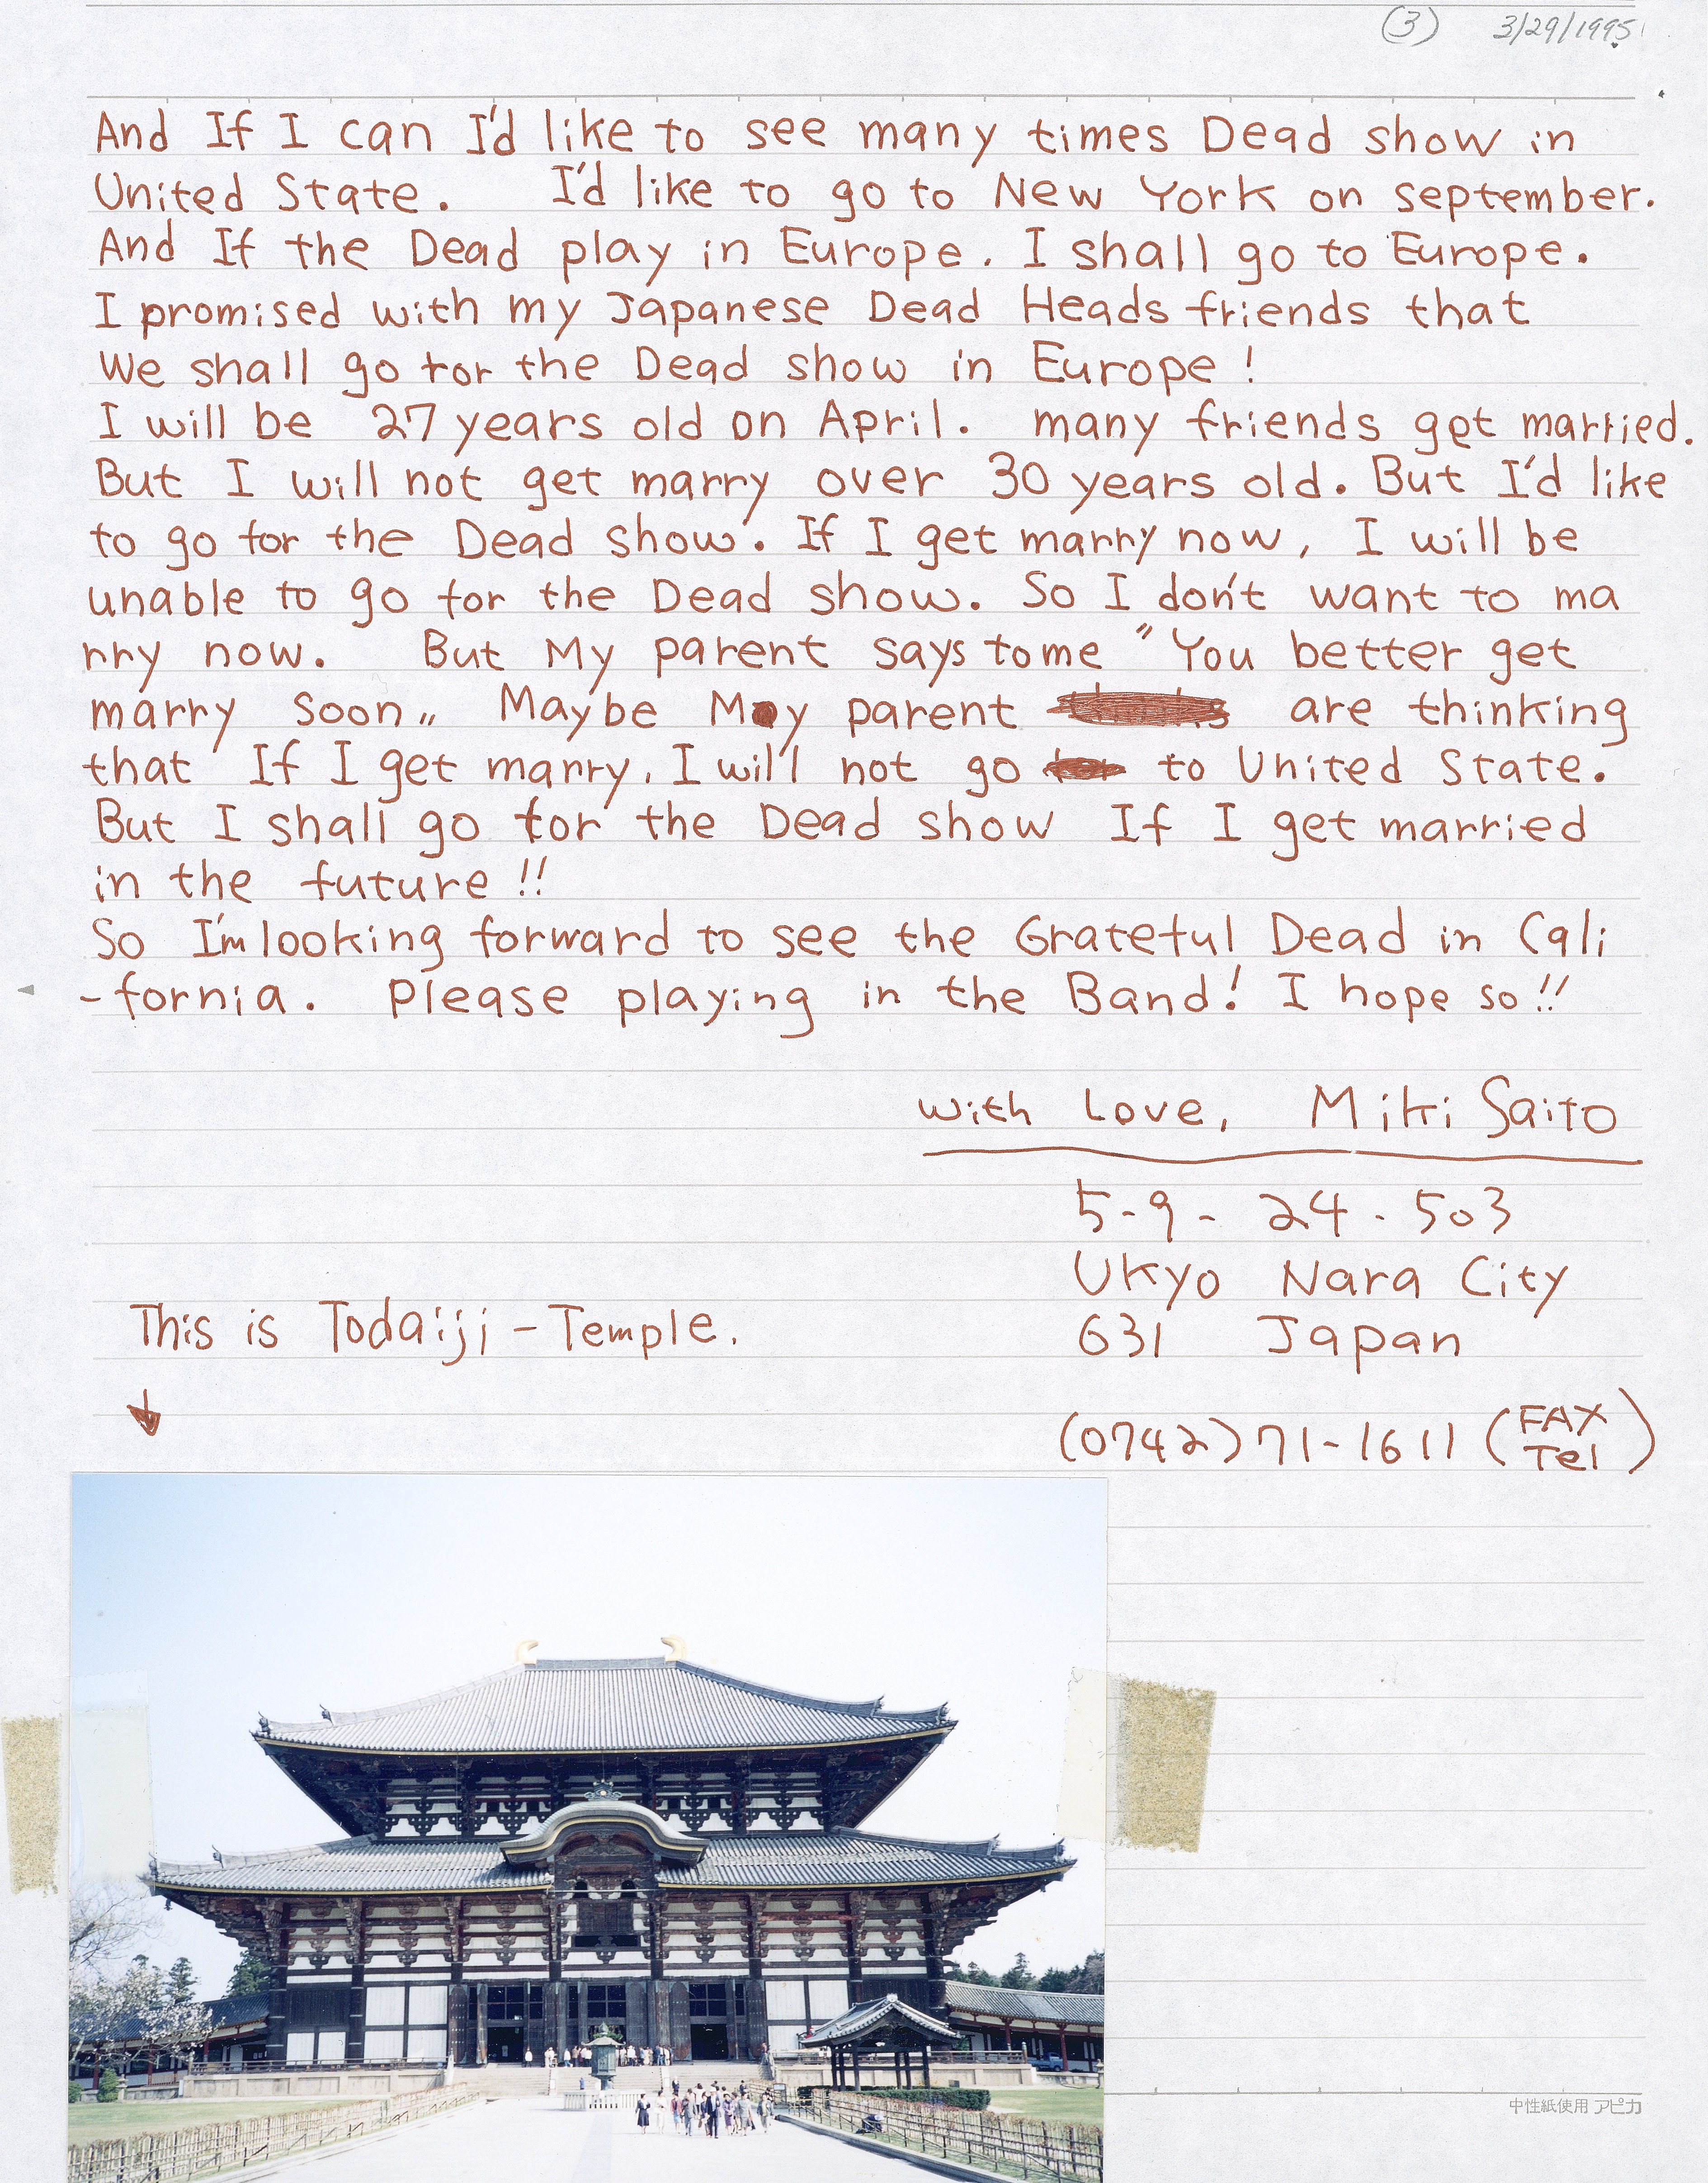 (3) 3/29/1995
And If I can I'd like to see many times Dead show in
United State. I'd like to go to New York on september.
And If the Dead play in Europe. I shall go to Europe.
I promised with my Japanese Dead Heads friends that
We shall go for the Dead show in Europe!
I will be 27 years old on April. many friends get married.
But I will not get marry over 30 years old. But I'd like
to go for the Dead show. If I get marry now, I will be
unable to go for the Dead show. So I don't want to ma
rry now. But My parent says to me "You better get
marry soon„ Maybe My parent are thinking
that If I get marry, I will not go to United State.
But I shall go for the Dead show If I get married
in the future!!
So I'm looking forward to see the Grateful Dead in Cali
-fornia. Please playing in the Band! I hope so!!
with Love, Miki Saito
5-9-24-503
Ukyo Nara City
631 Japan
(0742)71-1611 (FAX
Tel)
This is Todaiji-Temple.
↓
中性紙使用 アピカ